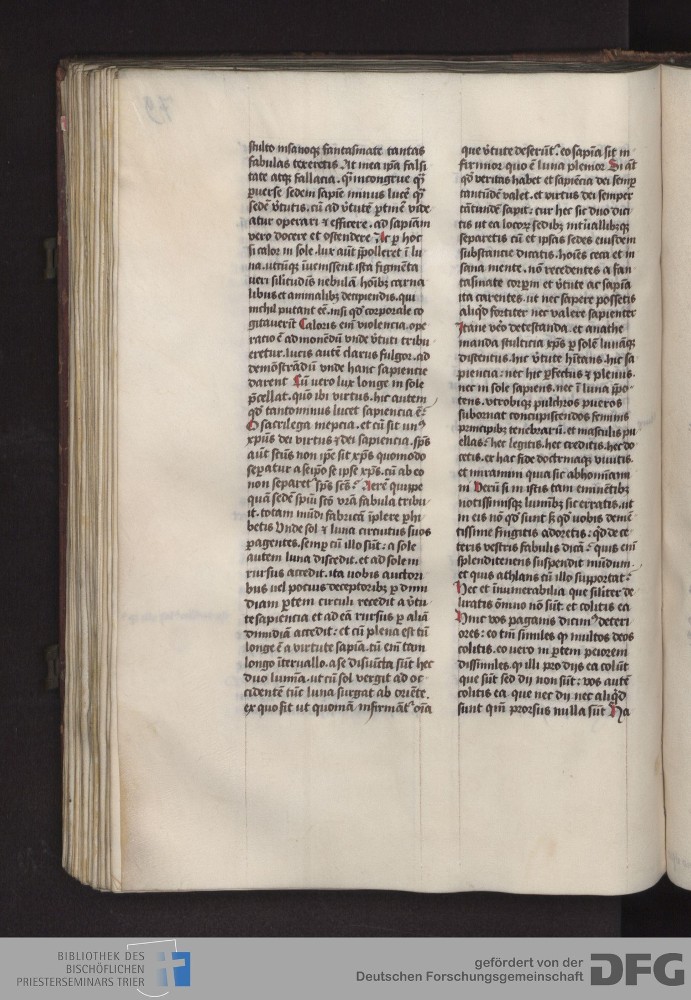 stulto insanoq; fantasmate tantas
fabulas texeretis. It mea ip̄a falsi
tate atq; fallacia. q̄ incongrue q̄
ꝑuerse sedem sapīe minus lucē q̄
sedē v̄tutis. cū ad v̄tutē ꝑtinē vide
atur operari ⁊ efficere. ad sapiam
vero docere et ostendere. Ac ꝑ hoc
si calor in sole. lux aūt p̄polleret ī lu
na. utcūq; īuenissent ista figmēta
ueri silitudīs nebulā hoīb; carna
libus et animalib; decipiendis. qui
nichil putant eē. nisi qd̄ corporale co
gitauerīt Caloris em̄ violencia. ope
ratio ē admonēdū vnde v̄tuti tribu
eretur. lucis autē clarus fulgor. ad
demōstrādū vnde hanc sapiencie
darent Cū uero lux longe in sole
p̄cellat. quō ibi virtus. hic autem
qd̄ tanto minus lucet sapiencia ē?
O sacrilega inepcia. et cū sit un⁹
xp̄ius dei virtus ⁊ dei sapiencia. sp̄s
aūt sc̄us non ip̄e sit xp̄s quomodo
seꝑatur a seip̄o se ipse xp̄s. cū ab eo
non separet sp̄s sc̄s? Aerē quippe
quā sedē sp̄iū sc̄s vr̄a fabula tribu
it. totam mūdi fabricā īplere ꝑhi
betis Vnde sol ⁊ luna circuitus suos
ꝑagentes. semꝑ cū illo sūt: a sole
autem luna discedit. et ad solem
rursus accedit. ita uobis auctori
bus uel pocius deceptorib; ꝑ dimi
diam ꝑtem circuli recedit a v̄tu
te sapiencia et ad eā rursus ꝑ aliā
dimidiā accedit: et cū plena est tū
longe ē a virtute sapīa. tū em̄ tam
longo īteruallo. a se disiūcta sūt hec
duo lumīa. ut cū sol vergit ad oc
cidentē tūc luna surgat ab oriēte.
ex quo fit ut quoniā infirmāt̄ oīa
que v̄tute deserūt̄. eo sapīa sit in
firmior quo ē luna plenior Si aūt
qd̄ veritas habet et sapiēcia dei semꝑ
tantūdē valet. et virtus dei semper
tātūdē sapit. cur hec sic duo dici
tis ut ea locorꝝ sedib; int̄uallisq;
separetis cū et ipsas sedes eiusdem
substancie dicatis. hoīes ceca et in
sana mente. nō recedentes a fan
tasmate corꝑm et v̄tute ac sapīa
ita carentes. ut nec sapere possetis
aliqd̄ fortiter nec valere sapienter
Itane vēo detestanda. et anathe
manda stulticia xp̄s ꝑ solē lunāq;
distentus. hic v̄tute hītans. hic sa
piencia: nec hic ꝑfectus ⁊ plenus.
nec in sole sapiens. nec ī luna p̄po
tens. vtrobiq; pulchros pueros
subornat concupiscendos feminis
principib; tenebrarū. et masculis pu
ellas? hec legitis. hec creditis. hec do
cetis. ex hac fide doctrinaq; viuitis.
et miramini quia sic abhominam
ini Verū si in istis tam eminētib;
notissimisq; luminib; sic erratis. ut
in eis nō qd̄ sunt s; qd̄ uobis demē
tissime fingitis adoretis: qd̄ de ce
teris vestris fabulis dicā? quis em̄
splenditenens suspendit mūdum.
et quis athlans cū illo supportat?
Hec et īnumerabilia que siliter de
liratis om̄no nō sūt: et colitis ea
Hinc vos paganis dicim⁹ deteri
ores: eo tm̄ similes qͥ multos deos
colitis. eo uero in ꝑtem peiorem
dissimiles. qͥ illi pro dijs ea colūt
que sūt sed dij non sūt: vos autē
colitis ea que nec dij nec aliqd̄
sunt qm̄ prorsus nulla sūt Ha
BIBLIOTHEK DES
BISCHÖFLICHEN
PRIESTERSEMINARS TRIER
gefördert von der
Deutschen Forschungsgemeinschaft
DFG